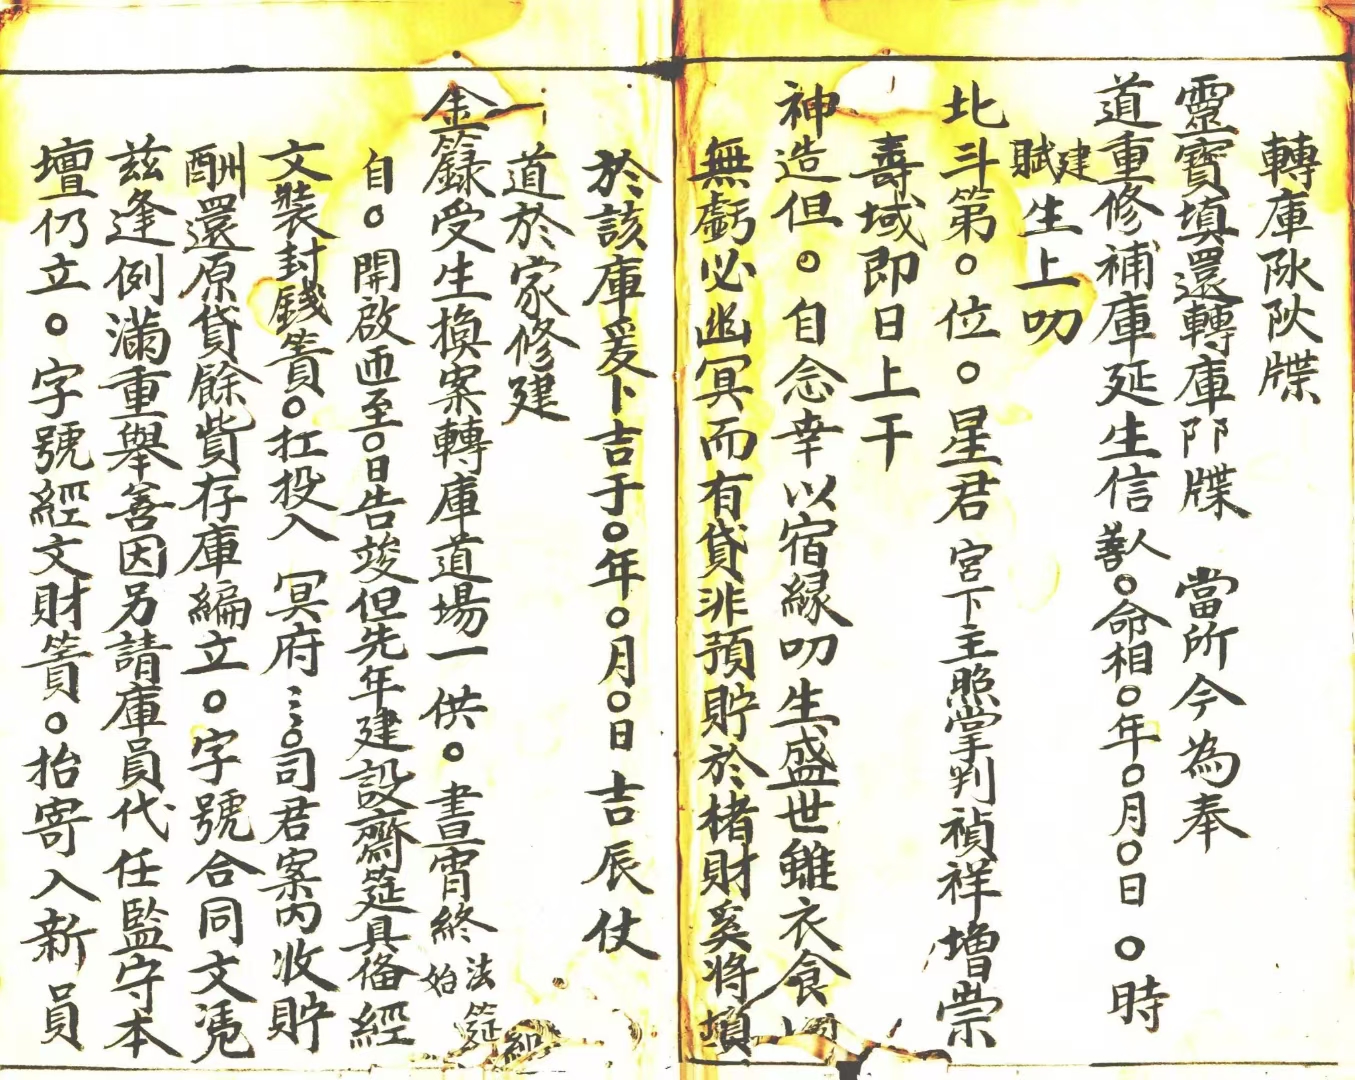 轉庫阦阦牒
靈寶填還轉庫阝阝牒　當所今為奉
道重修補庫延生信善人○命相○年○月○日　○時
建賦生上叨
北斗第○位○星君宮下主照掌判禎祥增崇
壽域即日上干
神造但○自念幸以宿緣叨生盛世雖衣食
無虧必幽冥而有貸非預貯於楮財奚將填
於該庫爰卜吉于○年○月○日吉辰仗
道於家修建
金籙受生換案轉庫道場一供○晝宵終始法筵
自○開啟迊至○日告竣但先年建設齋筵具備經
文裝封錢簀○扛投入　冥府三三○司君案內收貯
酬還原貸餘貲存庫編立○字號合同文凴
茲逢例滿重舉善因另請庫員代任監守本
壇仍立○字號經文財簀○抬寄入新員